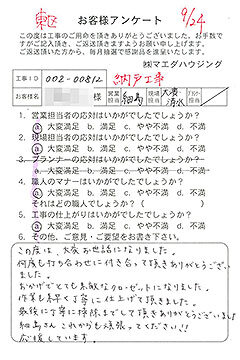 東区 お客様アンケート 9/24
この度は工事のご用命を頂きありがとうございました。お手数で
すがご記入頂き、ご返送頂きますようお願い申し上げます。
ご返送いただいた方から、毎月抽選で感謝品を進呈いたします。
㈱マエダハウジング
工事ID 002-00812 内戸工事
お客様名 様 営業担当 細島 現場担当 大賀 清水 アドバイザー担当
1. 営業担当の応対はいかがでしたでしょうか?
a 大変満足 b. 満足 c. やや不満 d. 不満
2. 現場担当の応対はいかがでしたでしょうか?
a 大変満足 b. 満足 c. やや不満 d. 不満
3. プランナーの応対はいかがでしたでしょうか?
a. 大変満足 b. 満足 c. やや不満 d. 不満
4. 職人のマナーはいかがでしたでしょうか?
a 大変満足 b. 満足 c. やや不満 d. 不満
それはどの職人でしょうか?( )
5. 工事の仕上がりはいかがでしたでしょうか?
a 大変満足 b. 満足 c. やや不満 d. 不満
6. その他、ご意見・ご要望をお書き下さい。
この度は、大変お世話になりました。
何度も打ち合わせに付き合って頂きありがとうござい
ました。
おかげでとても素敵なクローゼットになりました。
作業も早く丁寧に仕上げて頂きました。
最後に丁寧に掃除までして頂きありがとうございました。
細島さん これからも頑張ってください!!
応援しています。